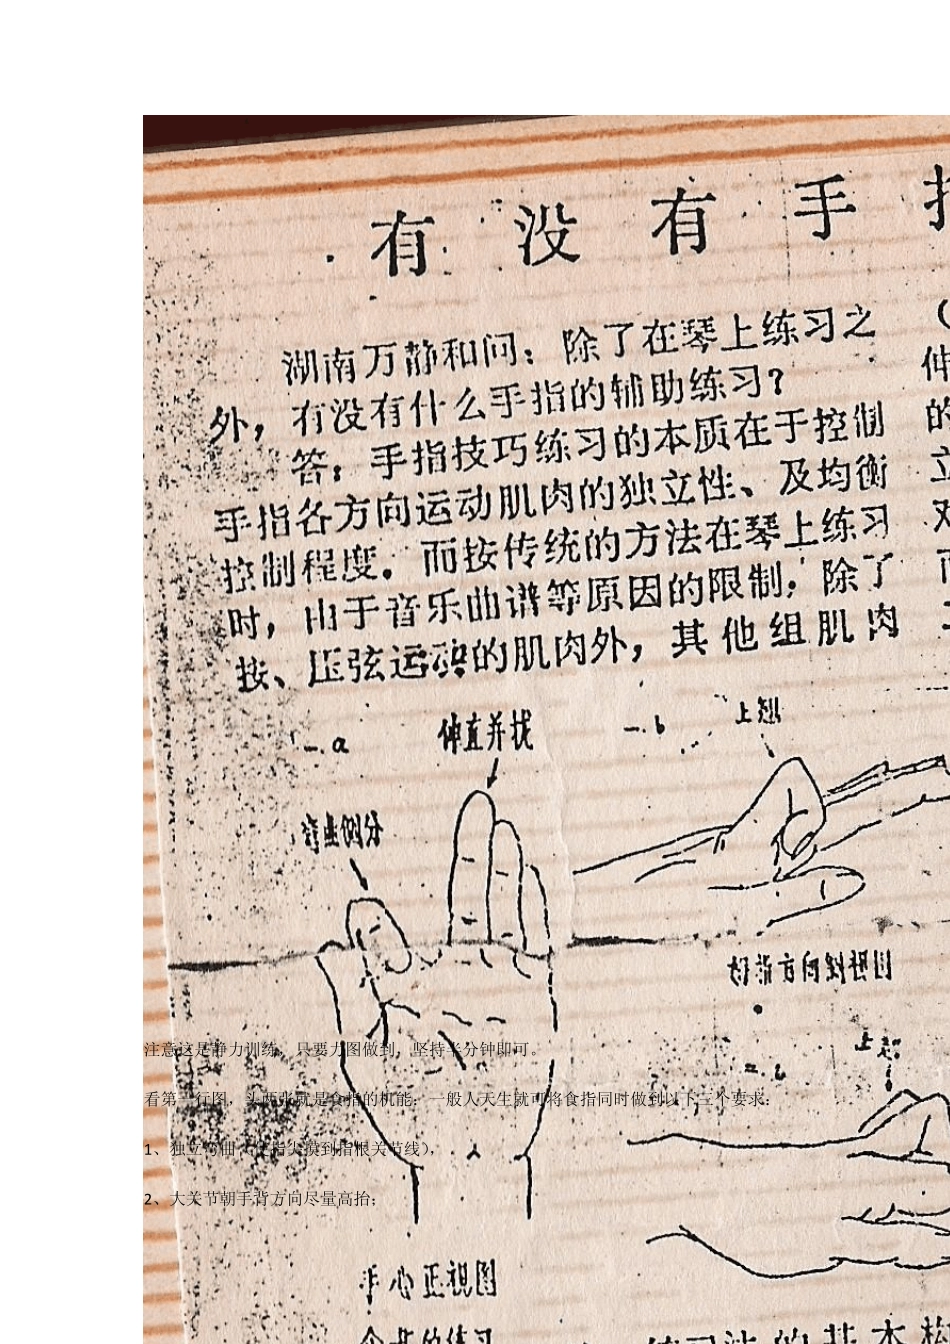 有没有手指
湖南万静和问：除了在琴上练习之
外，有没有什么手指的辅助练习？
答：手指技巧练习的本质在于控制
手指各方向运动肌肉的独立性、及均衡
控制程度。而按传统的方法在琴上练习
时，由于音乐曲谱等原因的限制，除了
按、压弦运动的肌肉外，其他组肌肉
伸
的
立
一.a
伸直并拢
一.b
上翘
弯曲侧分
注意这是静力训练，只要力图做到，坚持半分钟即可。
看第一行图，头两张就是食指的机能：一般人天生就可将食指同时做到以下三个要求：
1、独立弯曲（使指尖摸到指根关节线），
2、大关节朝手背方向尽量高抬；
手心正视图